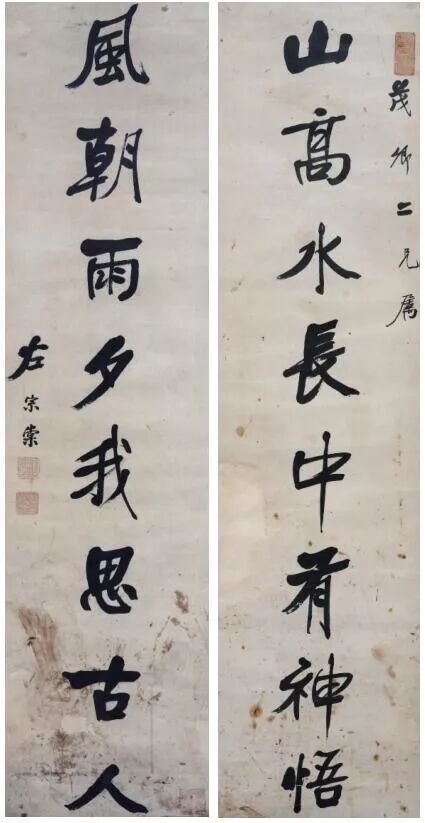 茂卿二兄属
山高水長中有神悟
風朝雨夕我思古人
左宗棠